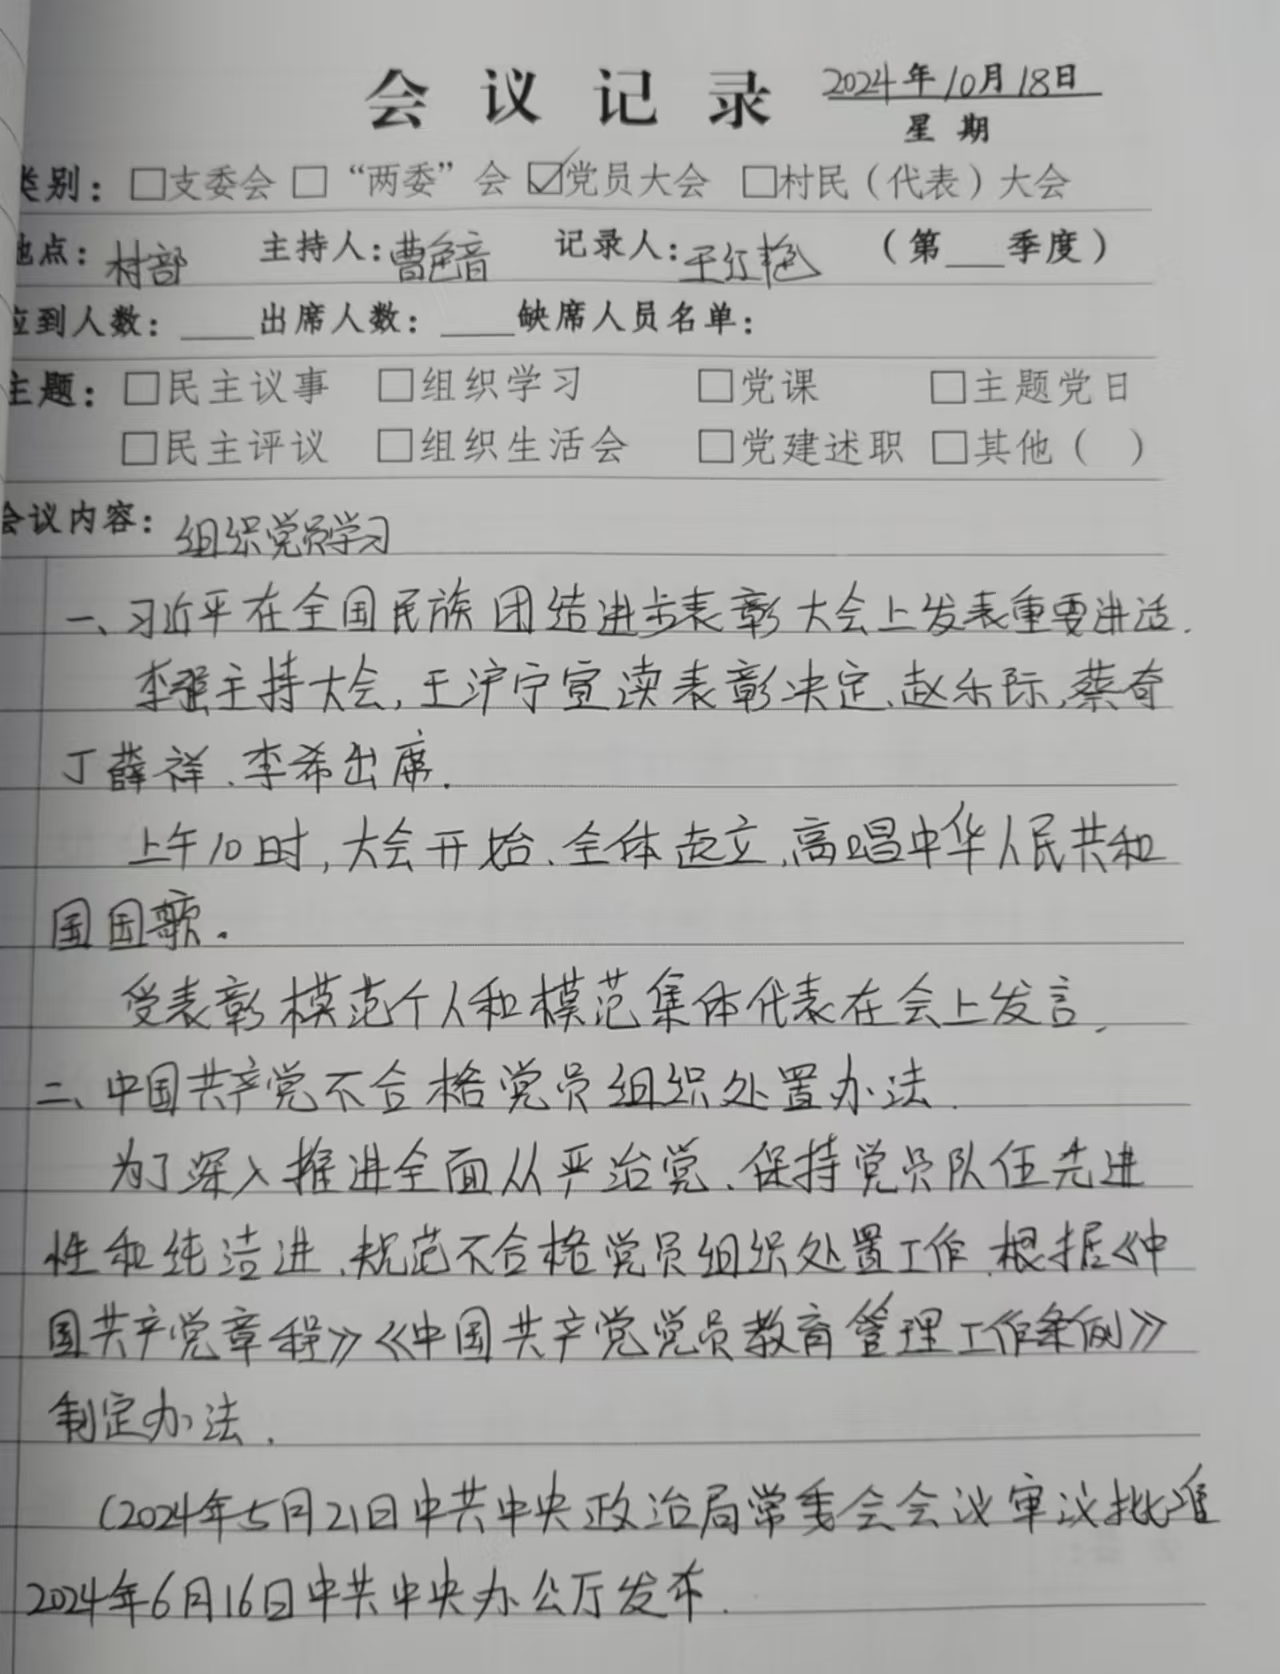 会议记录 2024年10月18日
星期
类别：□支委会 □“两委”会 ☑党员大会 □村民（代表）大会
地点：村部 主持人：曹色音 记录人：王红艳 （第___季度）
应到人数：____出席人数：____缺席人员名单：
主题：□民主议事 □组织学习 □党课 □主题党日
□民主评议 □组织生活会 □党建述职 □其他（ ）
会议内容：组织党员学习
一、习近平在全国民族团结进步表彰大会上发表重要讲话.
李强主持大会,王沪宁宣读表彰决定、赵乐际,蔡奇
丁薛祥、李希出席.
上午10时,大会开始、全体起立,高唱中华人民共和
国国歌。
受表彰模范个人和模范集体代表在会上发言,
二、中国共产党不合格党员组织处置办法.
为了深入推进全面从严治党、保持党员队伍先进
性和纯洁进、规范不合格党员组织处置工作,根据《中
国共产党章程》《中国共产党党员教育管理工作条例》
制定办法.
(2024年5月21日中共中央政治局常委会会议审议批准
2024年6月16日中共中央办公厅发布.